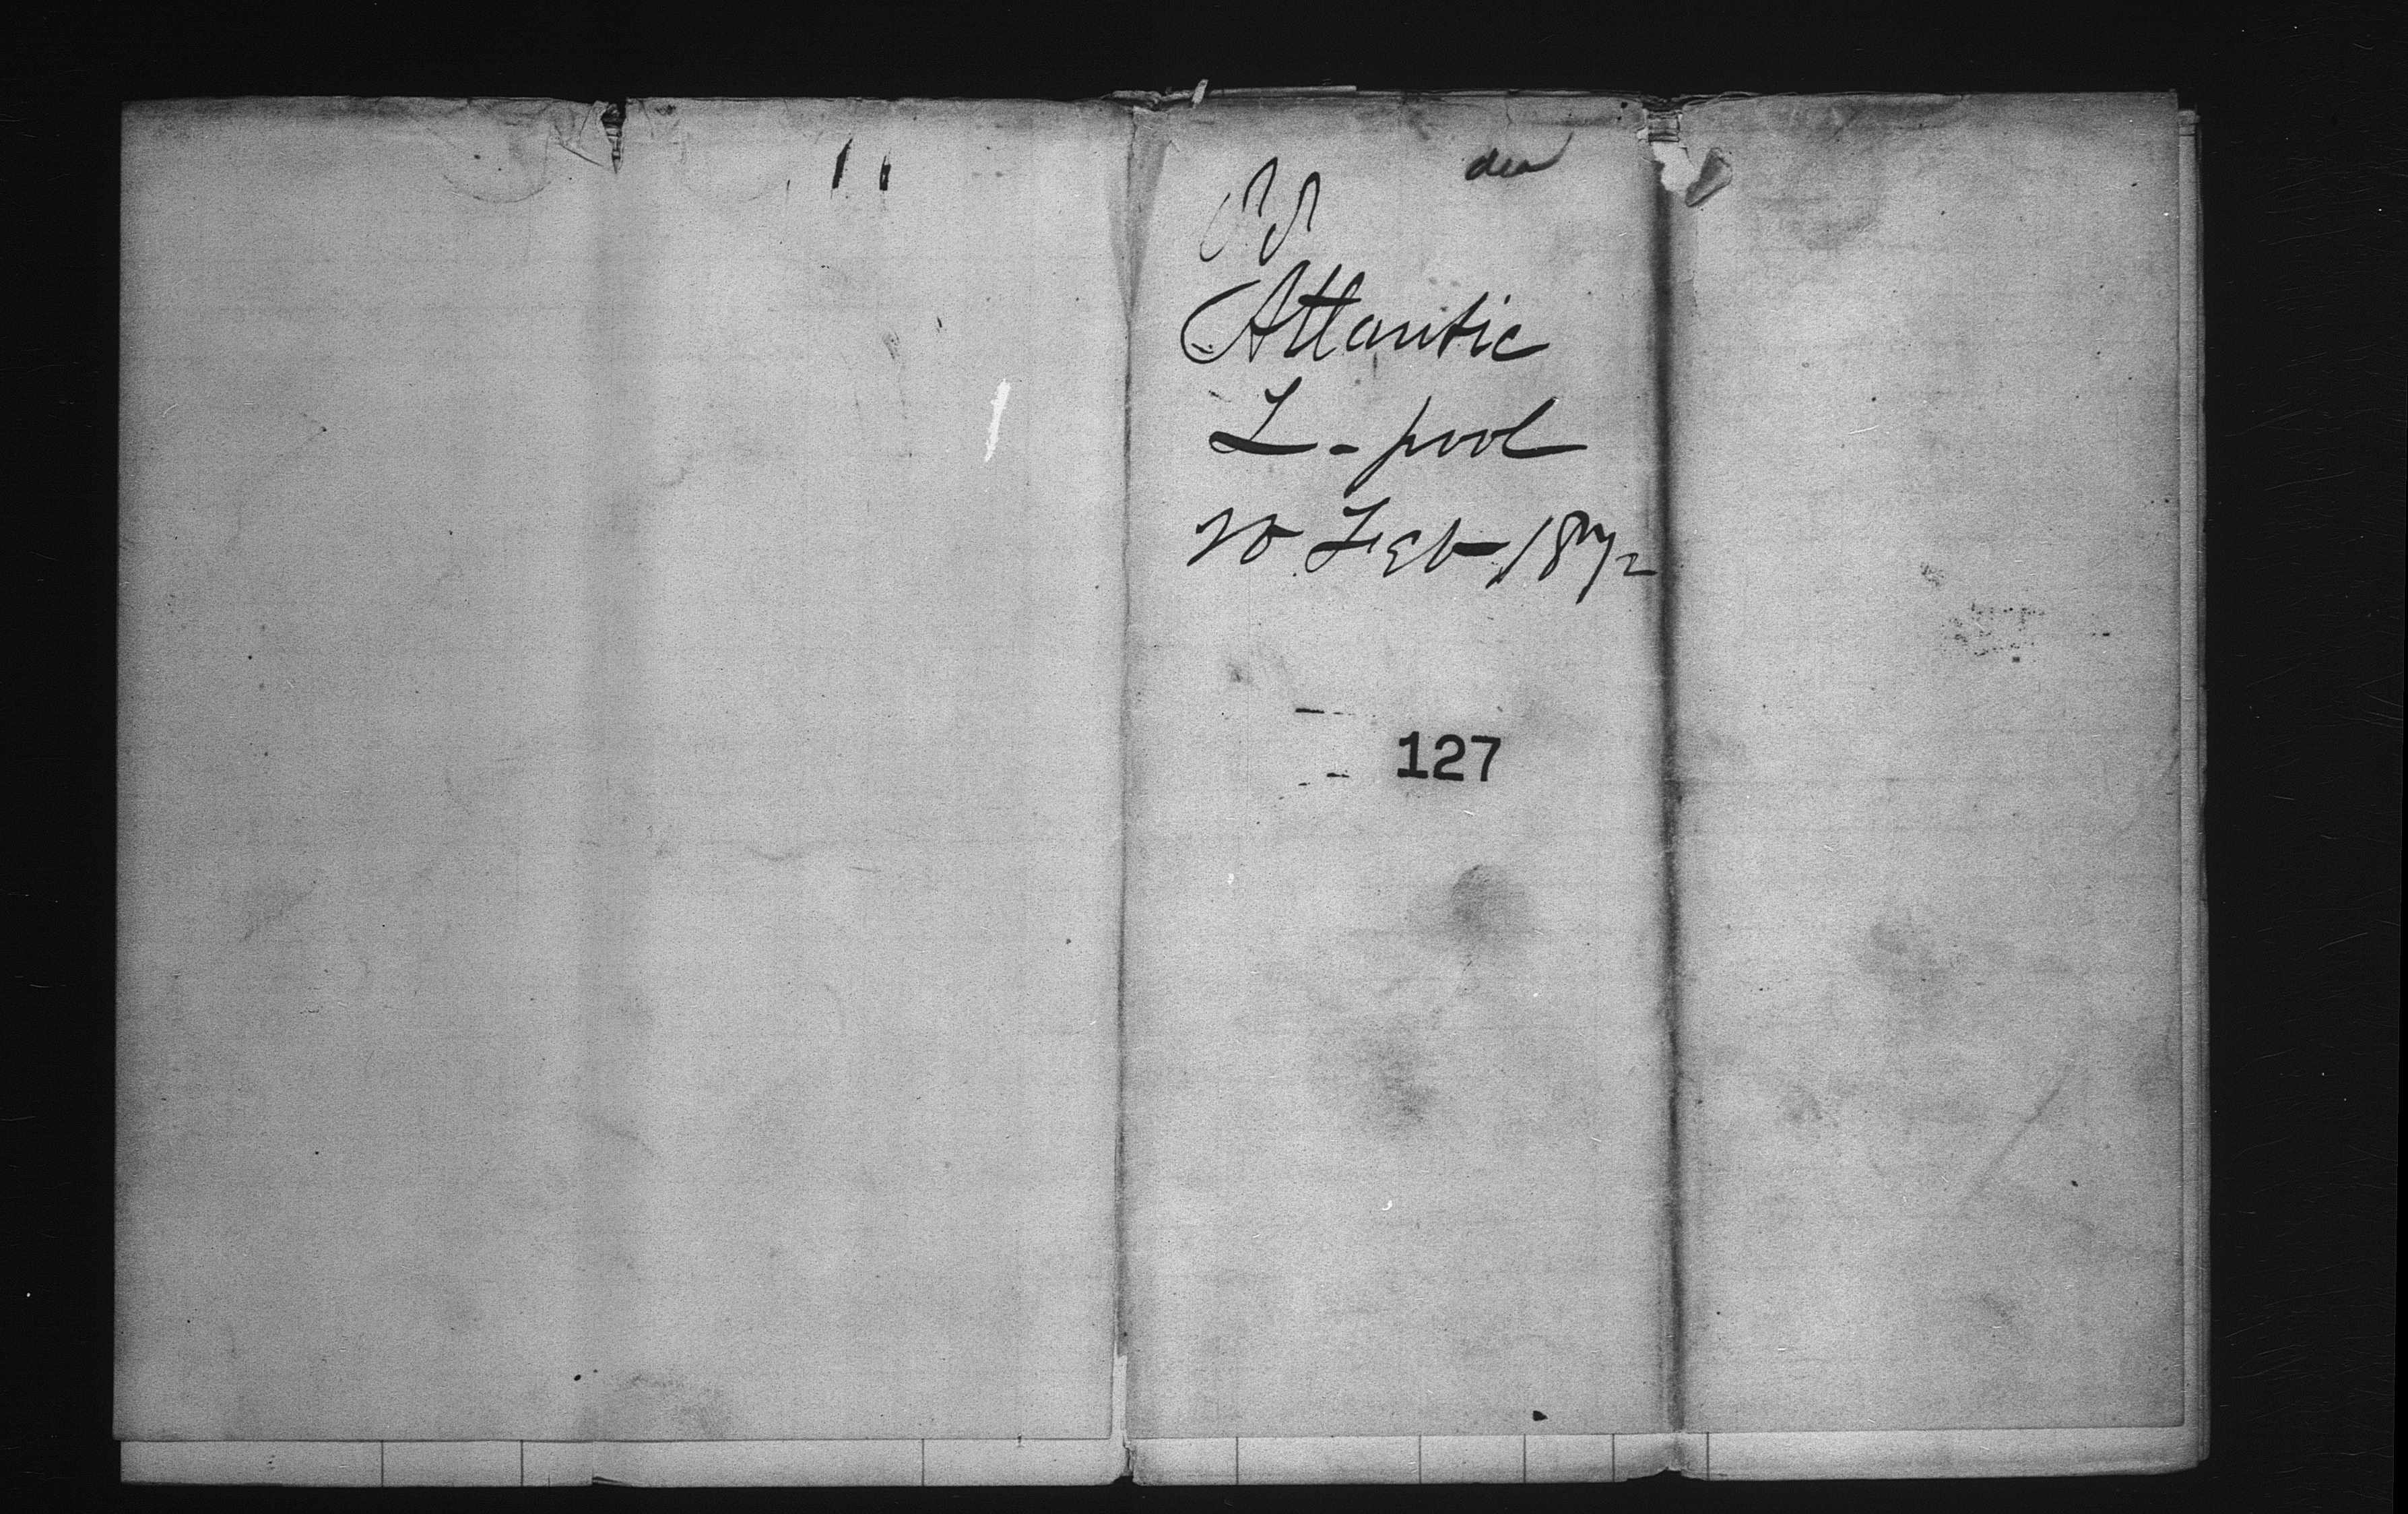 SS
Atlantic
L-pool
20 Feb 1872
127